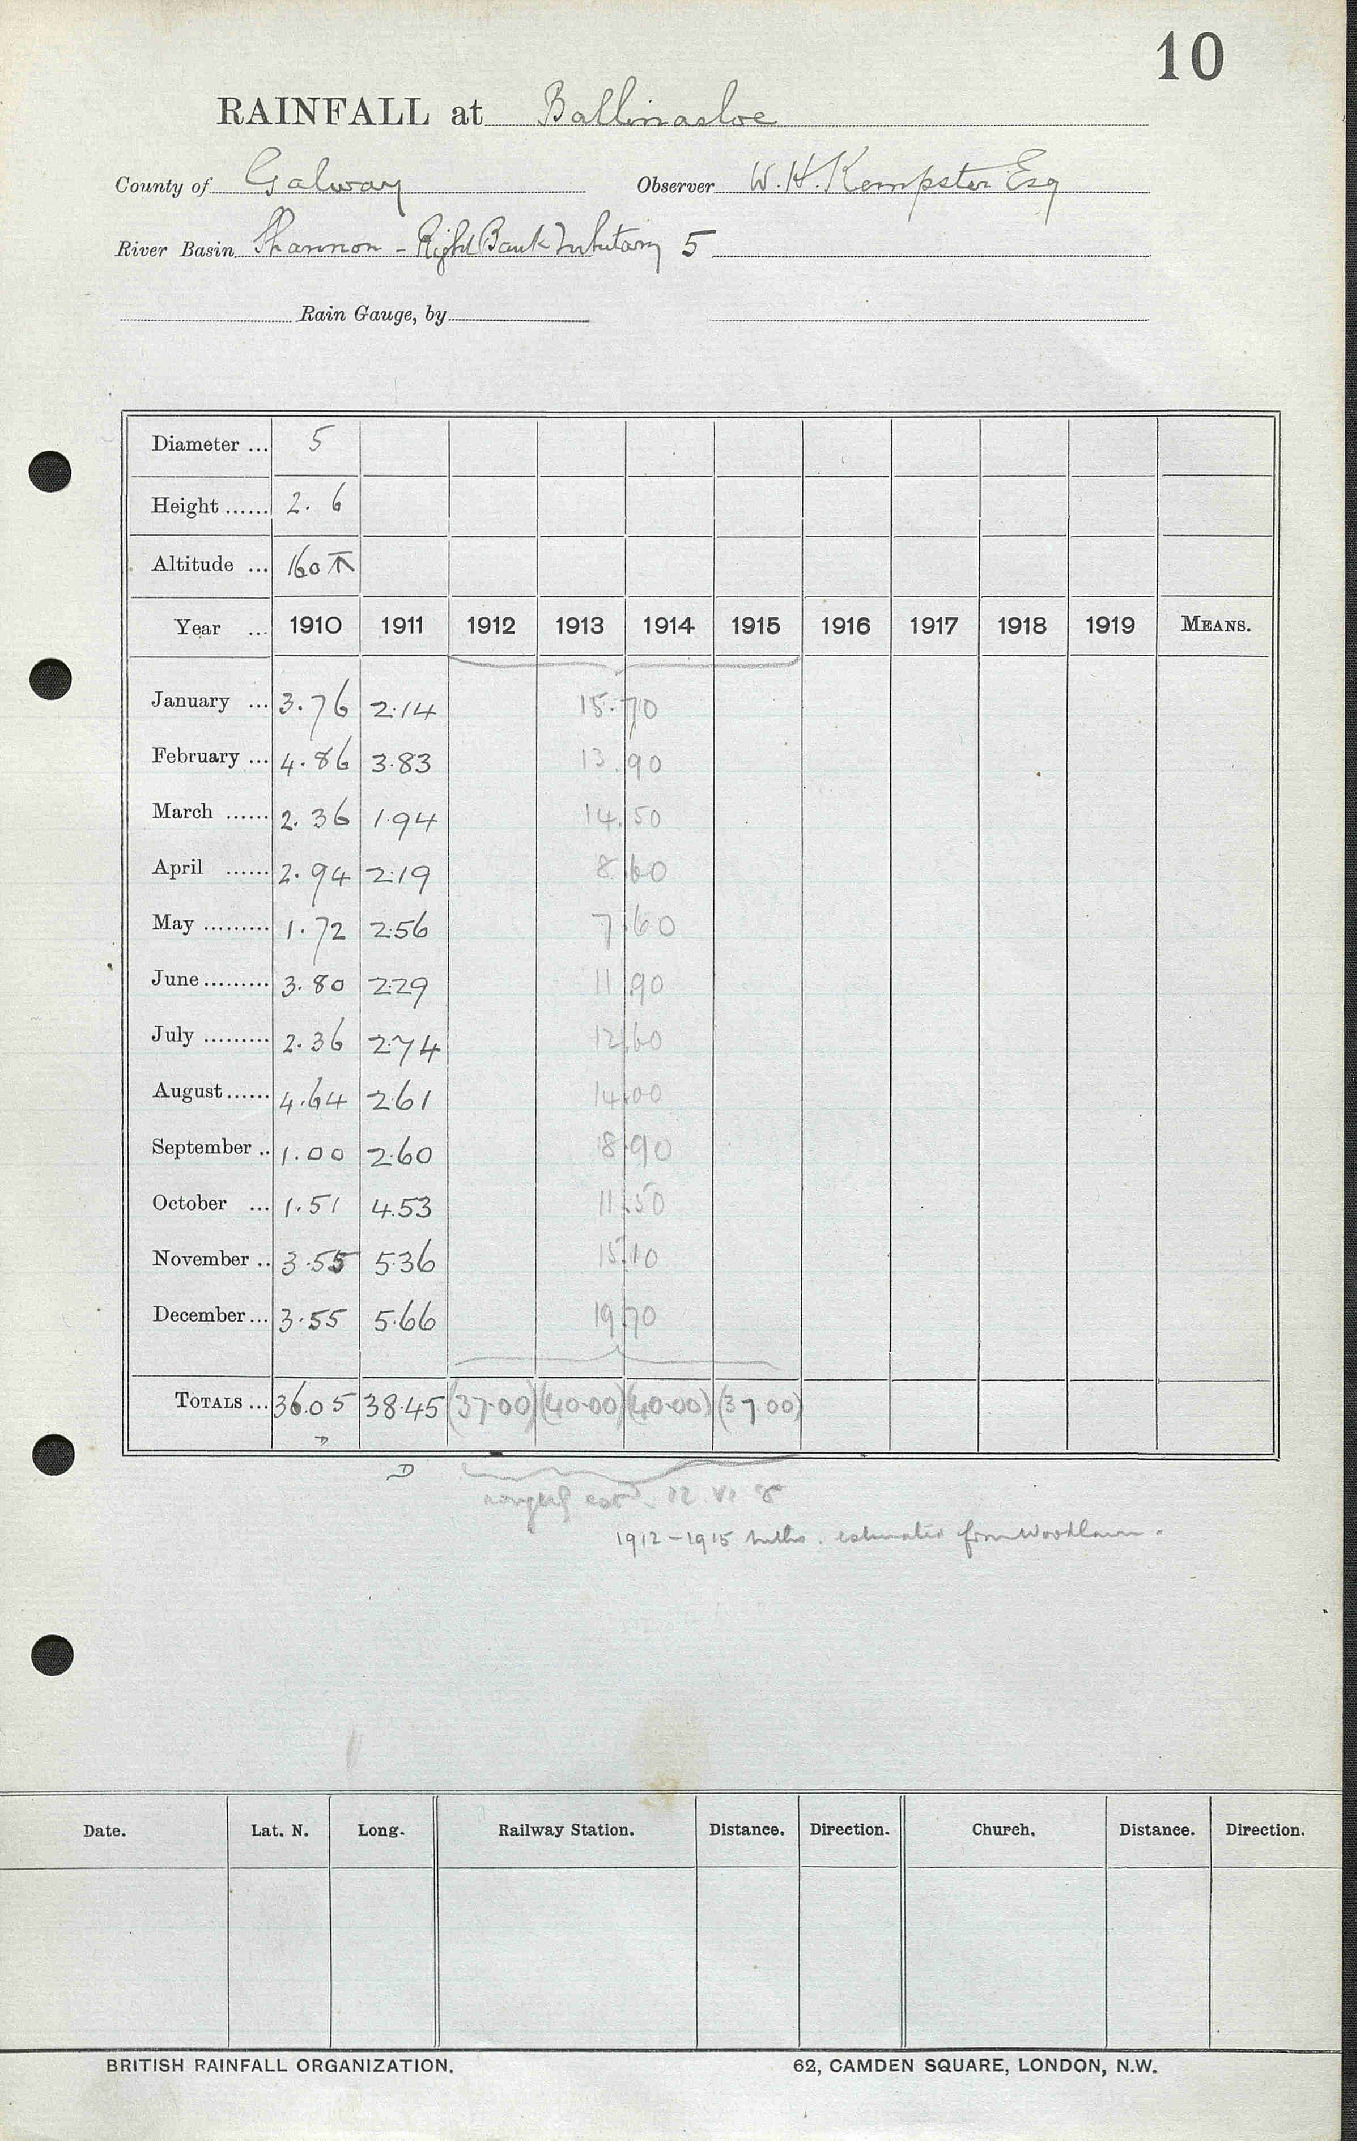 10
RAINFALL at Ballinasloe
County of Galway Observer W. H. Kempster Esq
River Basin Shannon - Right Bank Tributary 5
Rain Gauge, by
Diameter ... 5
Height ...... 2. 6
Altitude ... 160
Year ... 1910 1911 1912 1913 1914 1915 1916 1917 1918 1919 MEANS.
January ... 3.76 2.14 15.70
February ... 4.86 3.83 13.90
March ...... 2.36 1.94 14.50
April ...... 2.94 2.19 8.60
May ......... 1.72 2.56 7.60
June ......... 3.80 2.29 11.90
July ......... 2.36 2.74 12.60
August ...... 4.64 2.61 14.00
September .. 1.00 2.60 8.90
October ... 1.51 4.53 11.50
November .. 3.55 5.36 15.10
December ... 3.55 5.66 19.70
TOTALS ... 36.05 38.45 (37.00) (40.00) (40.00) (37.00)
D
1912-1915 mths. estimated from Woodlawn.
Date. Lat. N. Long. Railway Station. Distance. Direction. Church. Distance. Direction.
BRITISH RAINFALL ORGANIZATION. 62, CAMDEN SQUARE, LONDON, N.W.